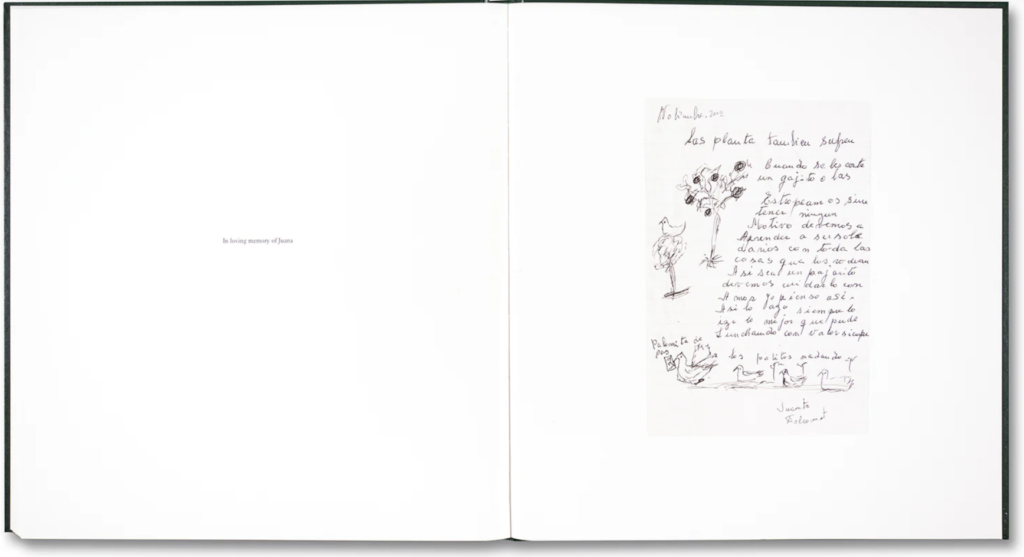 In loving memory of Juana
Las planta tambien sufren
Cuando se le corte
un gajito o las
Estropeamos sin
tener ningun
Motivo devemos a
Aprender a ser soli
darios con toda las
cosas que los rodean
Asi sea un pajarito
devemos cuidarlo con
Amor Yo pienso asi.
Asi lo ago siempre lo
ize lo mejor que pude
Luchando con valor siempre
Palomita de
pas
los patitos nadando
Juanita